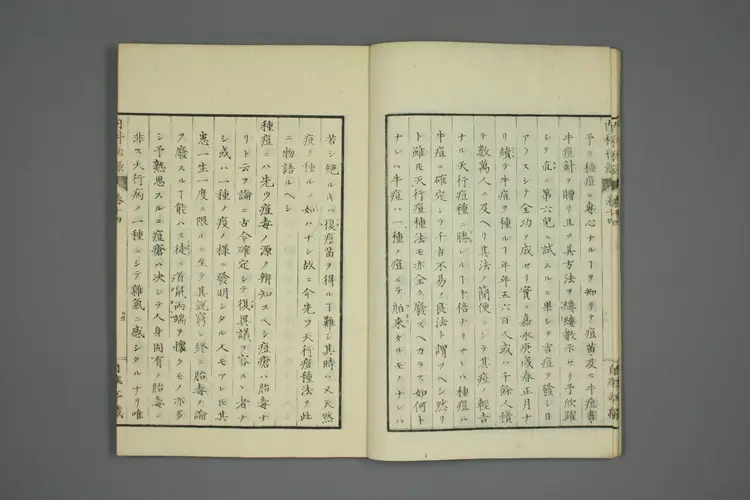 予カ種痘ニ専心ナルヿヲ知テ痘苗及ニ牛痘書
牛痘鮮ヲ贈リ且ツ其方法ヲ縷縷教示セリ予欣躍
シテ直ニ第六児ニ試ムルニ果シテ吉痘ヲ發シ日
アラスシテ全功ヲ成セリ實ニ嘉永庚戌春正月ナ
リ續テ牛痘ヲ種ルヿ年年五六百人或ハ千餘人積
テ數萬人ニ及ヘリ其法ノ簡便ニシテ其痘ノ輕吉
ナル天行痘種ニ勝レルヿ十倍ナリサレハ種痘ハ
牛痘ニ確定シテ千古不易ノ良法ト謂ツヘシ然リ
ト雖𪜈天行痘種法モ亦全ク廢スヘカラス如何ト
ナレハ牛痘ハ一種ノ痘ニテ舶来タルモノナレハ
若シ絶ルキハ復痘苗ヲ得ルヿ難シ其時ハ又天然
痘ヲ種ルニ如ハナシ故ニ今先ツ天行痘種法ヲ此
ニ物語ルヘシ
種痘ニハ先ツ痘毒ノ源ノ辨知スヘシ痘瘡ハ胎毒ナ
リト云フ論ニ古今確定シテ復異議ヲ容ルヽ者ナ
シ或ハ一種ノ疫ノ様ニ發明シタル人モアレ𪜈其
患一生一度ニ限ルニ至テ其説窮シ終ニ胎毒ノ論
ヲ廢スルヿ能ハス徒ニ首鼠兩端ヲ懐クモノ亦多
シ予熟思スルニ痘瘡ハ決シテ人身固有ノ胎毒ニ
非ス天行病ノ一種ニシテ雜氣ニ感シタルナリ唯